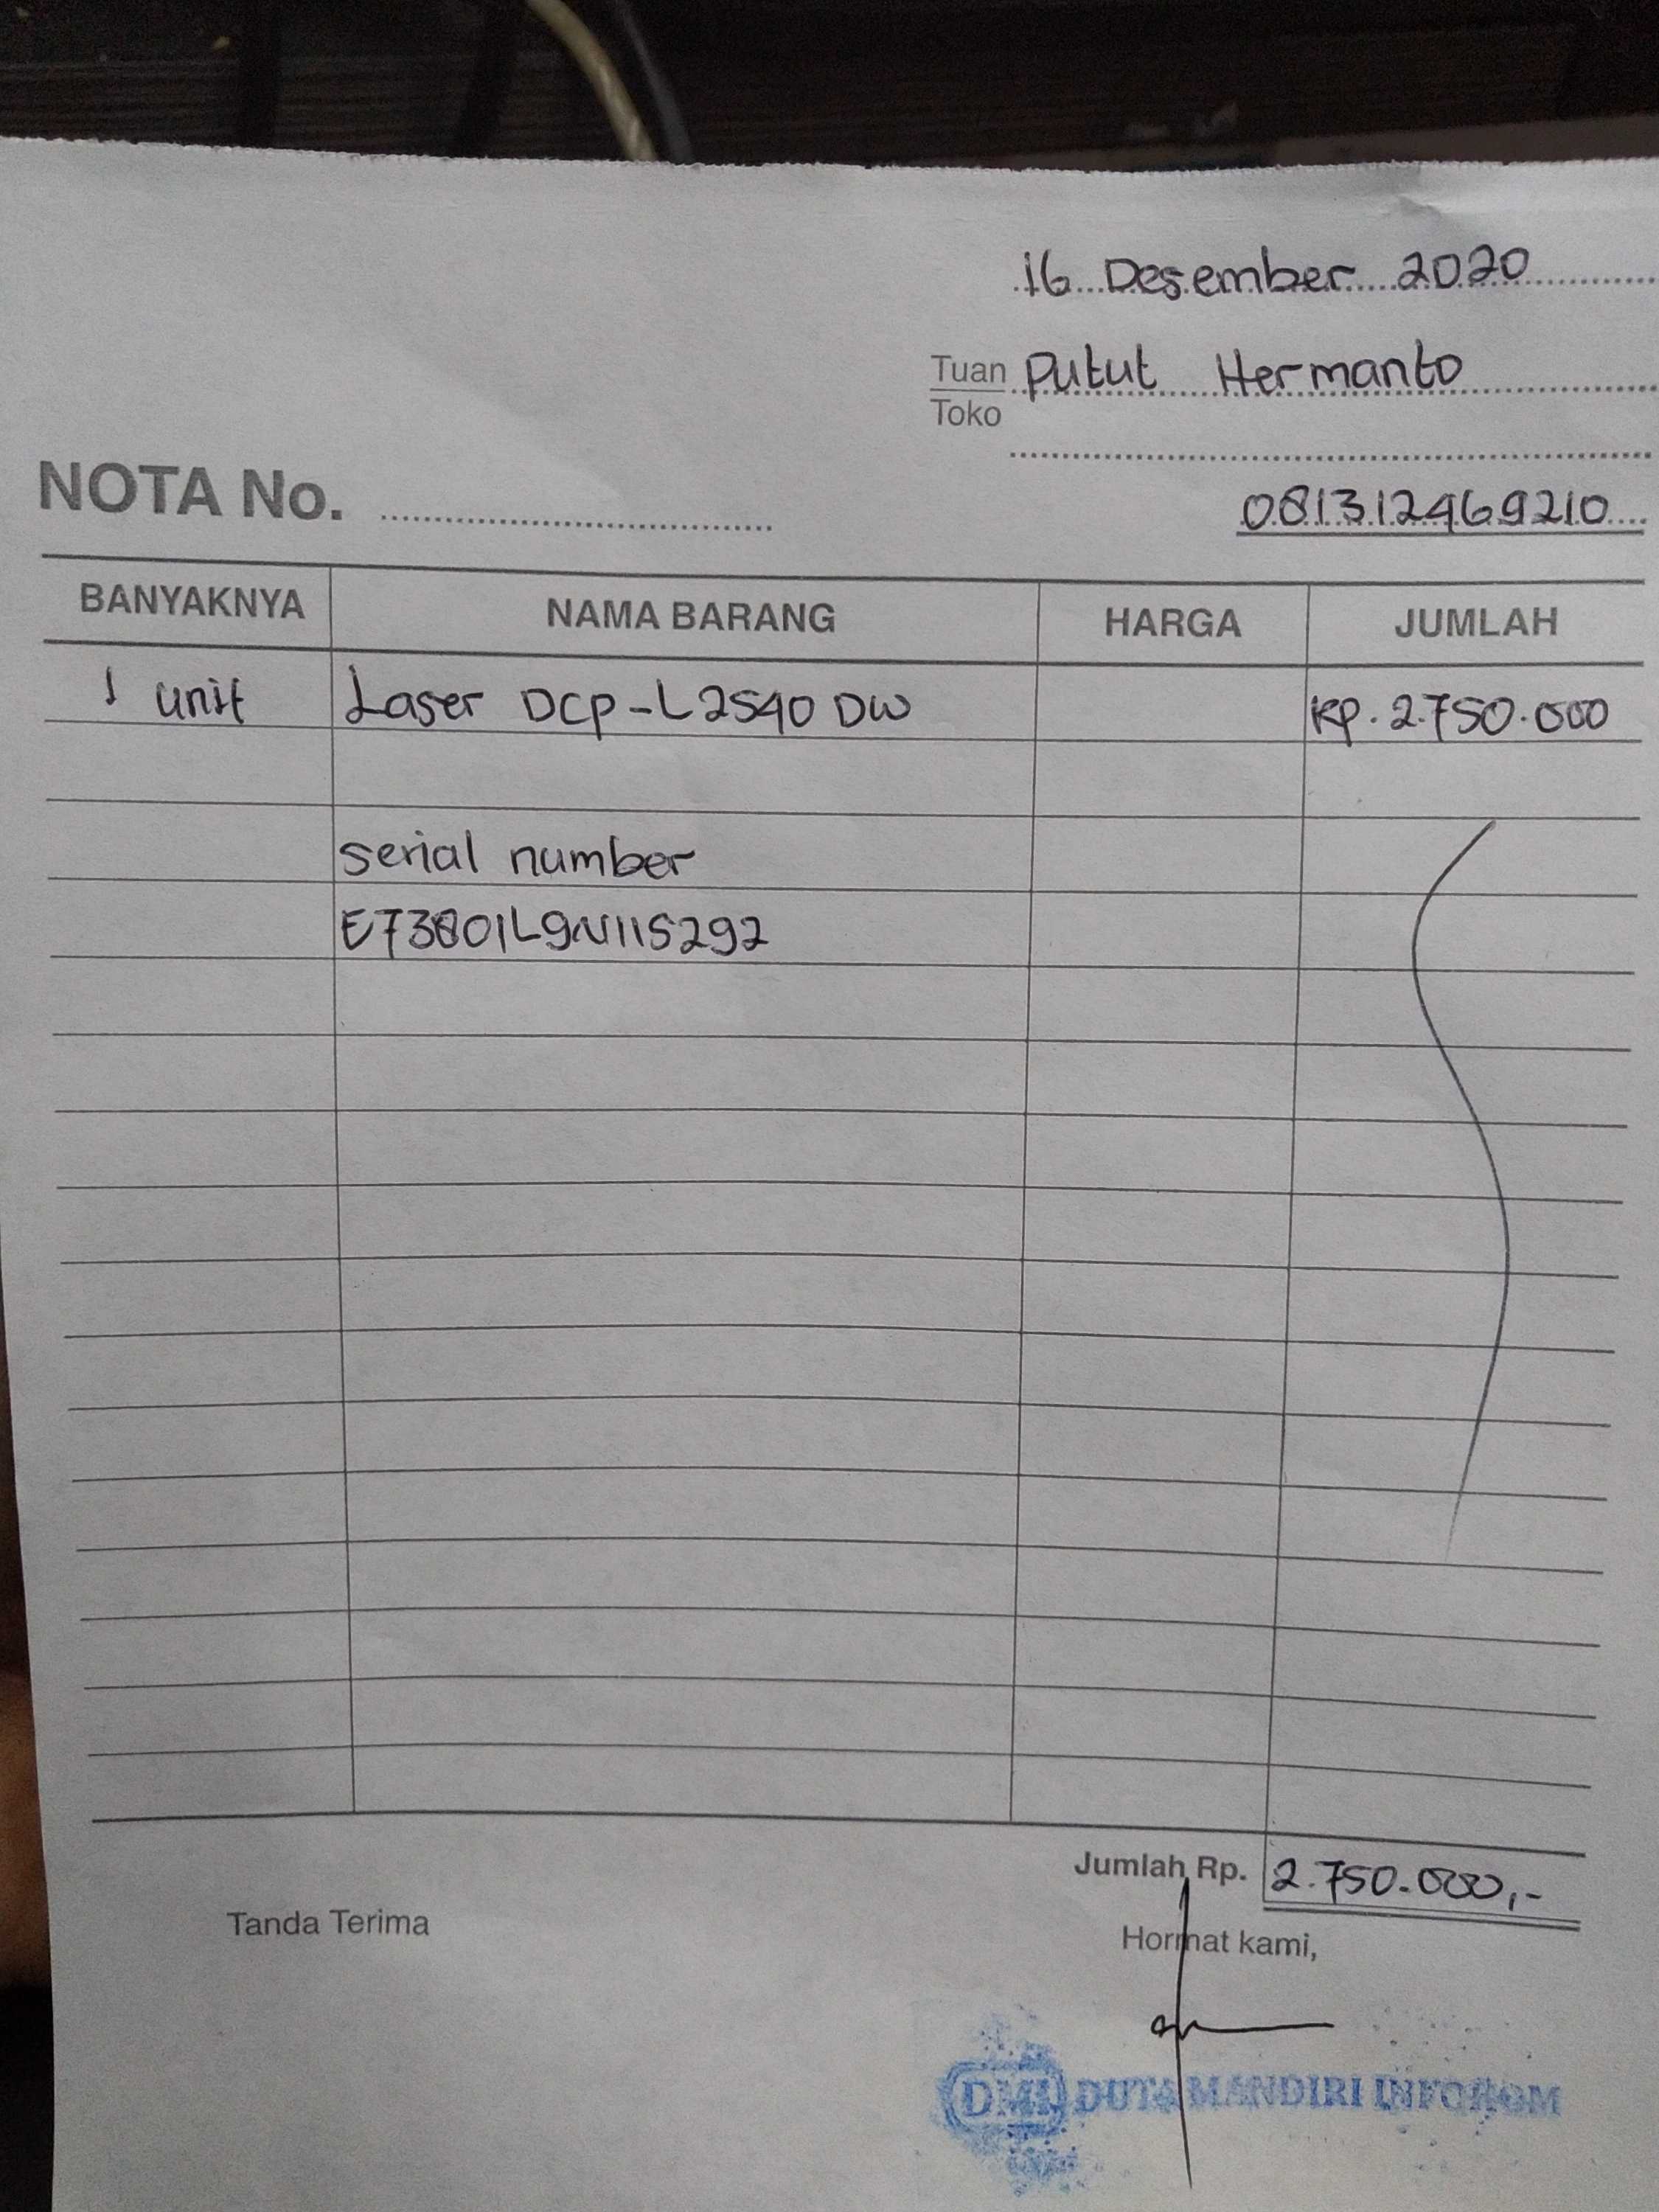 16 Desember 2020
Tuan Putut Hermanto
Toko
NOTA No.
081312469210
BANYAKNYA NAMA BARANG HARGA JUMLAH
1 unit Laser DCP-L2540 DW Rp. 2.750.000
serial number
E73801L9N115292
Jumlah Rp. 2.750.000,-
Tanda Terima
Hormat kami,
DMI DUTA MANDIRI INFOKOM